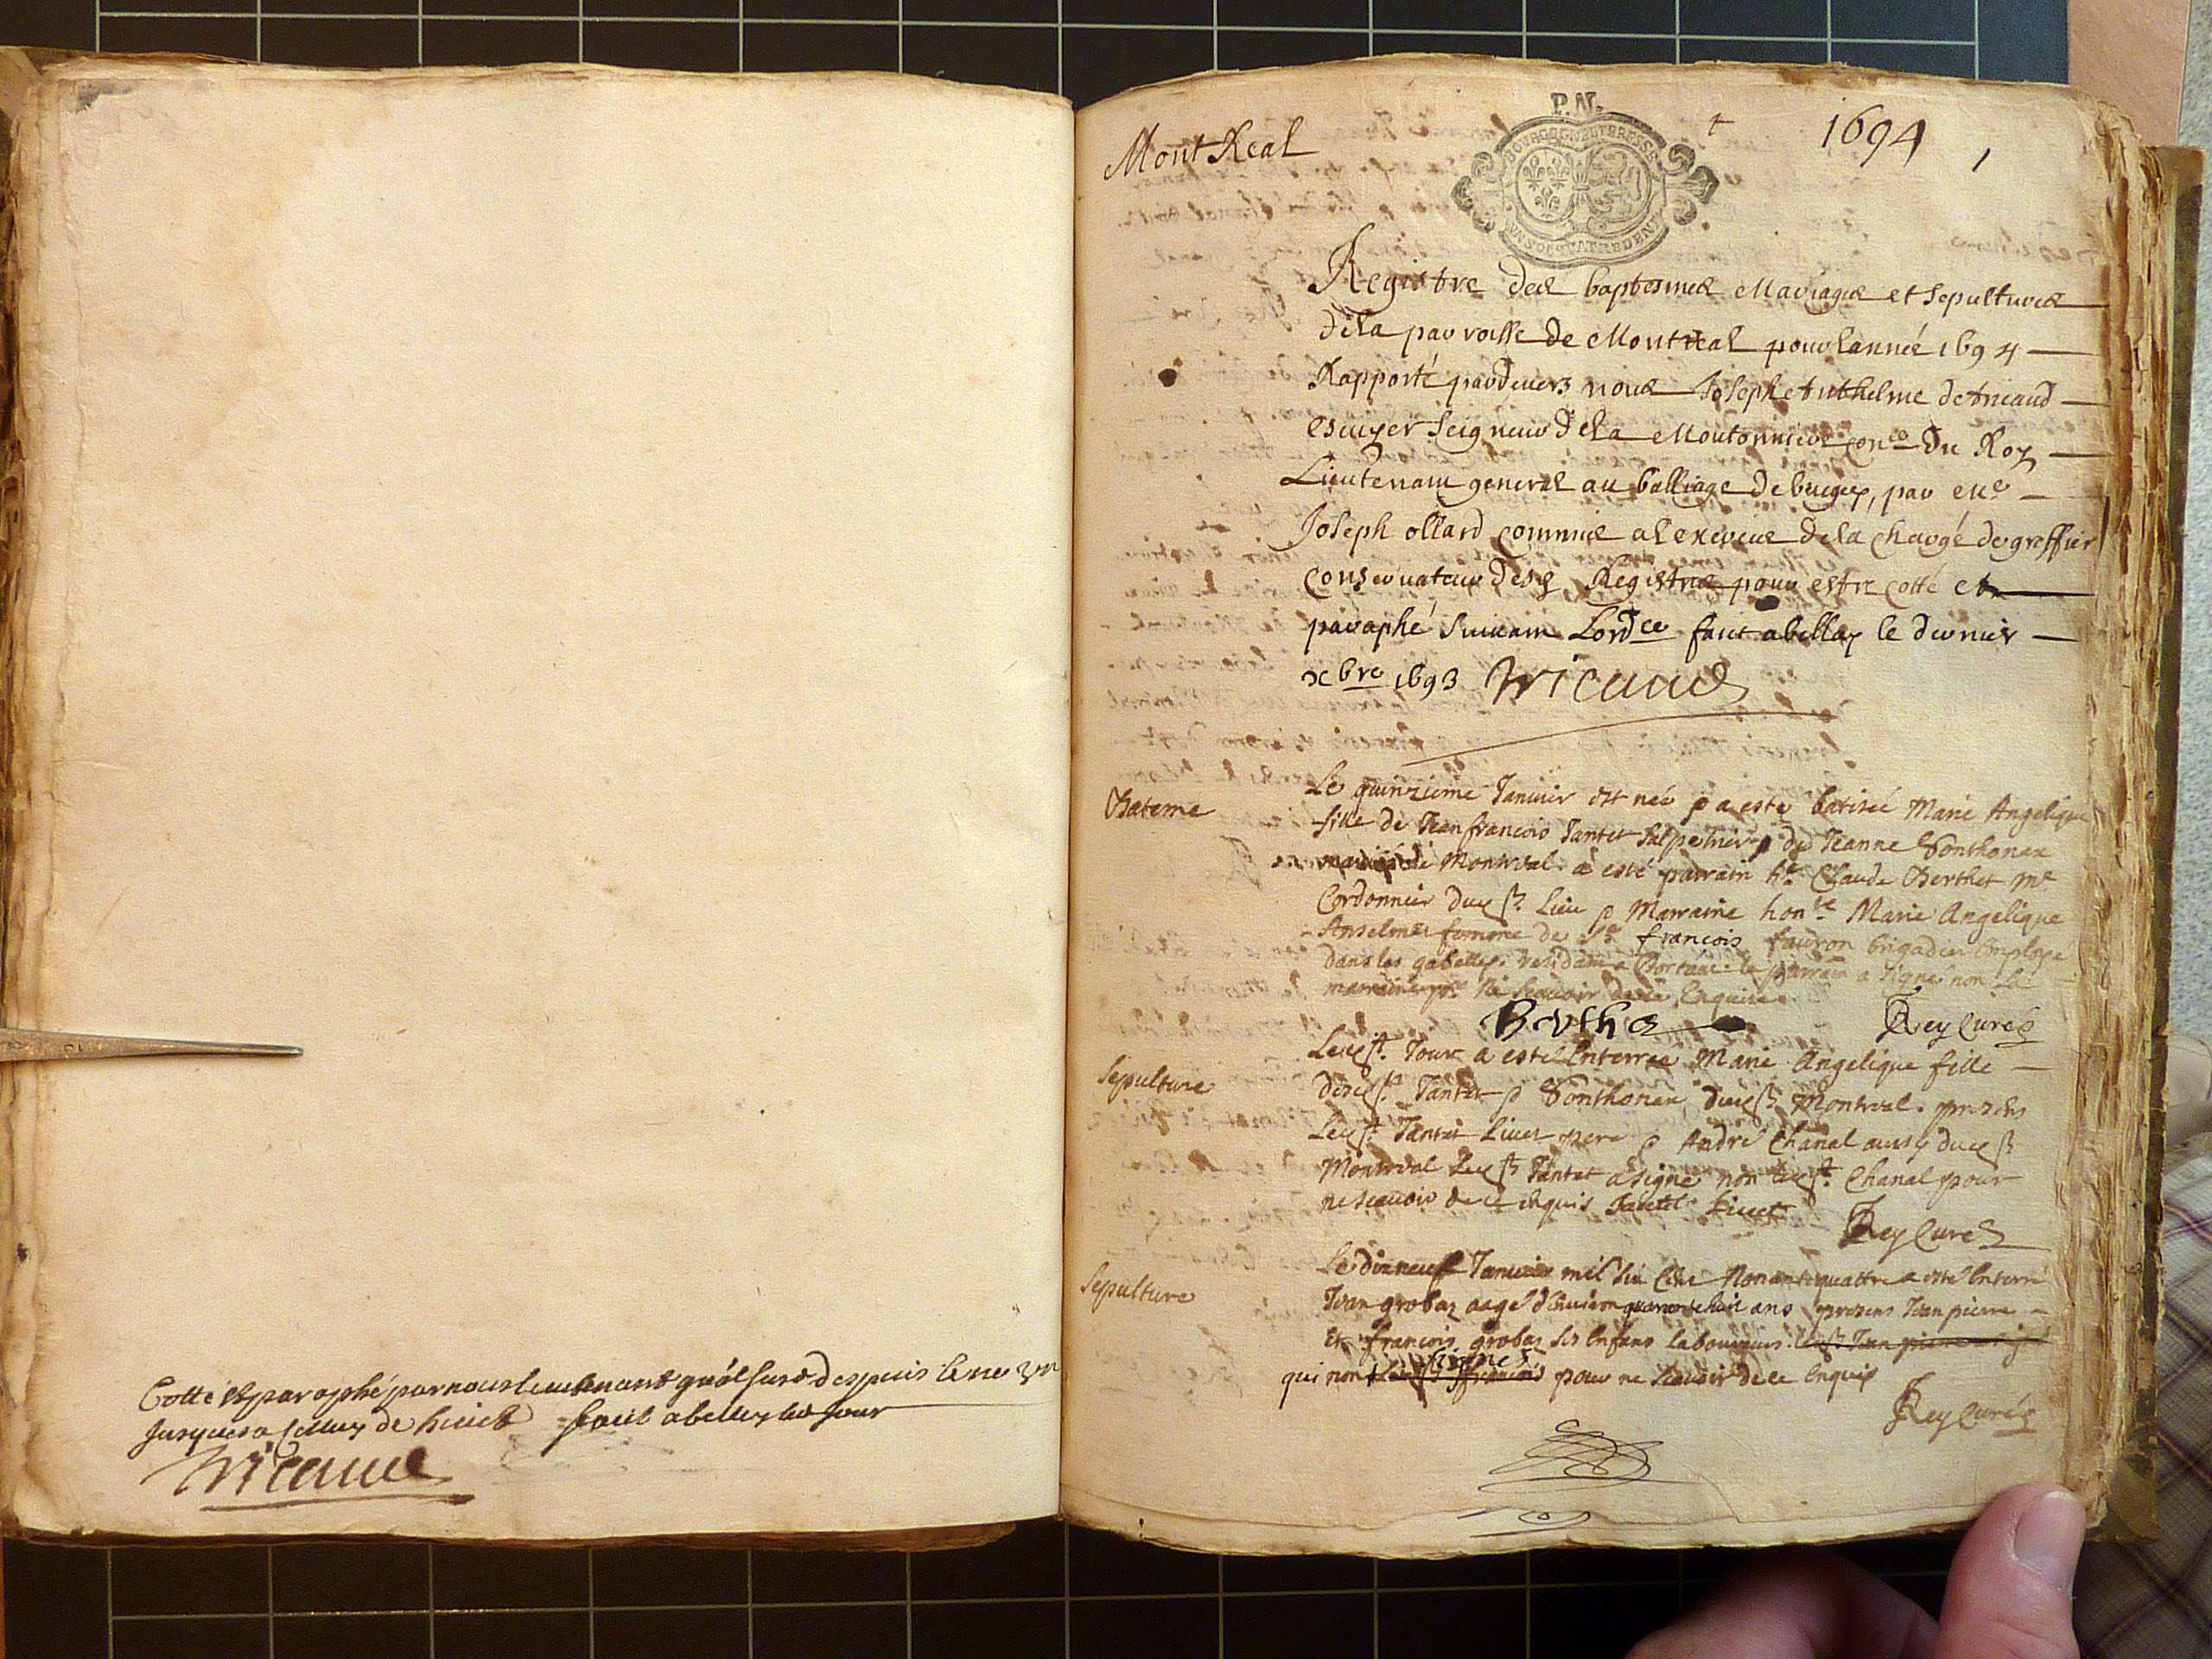 Cotté et paraphé par nous lieutenant gnál susd. despuis le no un
Jusques a celluy de huict fait a belley led. jour
Tricaud
Mont Real
P.N.
1694
1
BOURGOGNE ET BRESSE
UN SOL QUATRE DEN
Registre des baptesmes Mariages et sepultures
de la parroisse de Montreal pour lannée 1694
Rapporté pardevers nous Joseph Anthelme de tricaud
escuyer seigneur de la Moutonniere coner du Roy
Lieutenant general au balliage de bugey, par me
Joseph ollard commis a lexercice de la charge de greffier
conservateur desd. Registres pour estre cotté et
paraphé suivant Lordce fait a belley le dernier
xbre 1693 Tricaud
Bateme
Le quinzieme Janvier est née et a esté batisée Marie Angelique
fille de Jean francois Tantet salpetrier et de Jeanne Ponthonax
de Montreal. a esté parrain he. Claude Berthet me
Cordonnier dud. Lieu et Marraine honte. Marie Angelique
Anselme femme de Sr francois fauron brigadier Employé
dans les gabelles residant a le parrain a signé non la
marraine pr. ne scavoir de ce Enquise
Berthet Rey Curé
Sepulture
Led. Jour a esté Enterrée Marie Angelique fille
desd. Tantet et Ponthonax dud. Montreal. presens
Led. Tantet Livet pere et André Chanal aussy dud.
Montreal Led. Tantet a signé non led. Chanal pour
ne scavoir de ce enquis Tantet Livet
Rey Curé
Sepulture
Le dixneuf Janvier mil six Cent Nonante quattre a esté Enterré
Jean grobaz aagé d'environ quarante huit ans presens Jean pierre
Et francois grobaz ses Enfans laboureurs. led. Jean pierre
signes
qui non led. francois pour ne scavoir de ce Enquis
Rey Curé